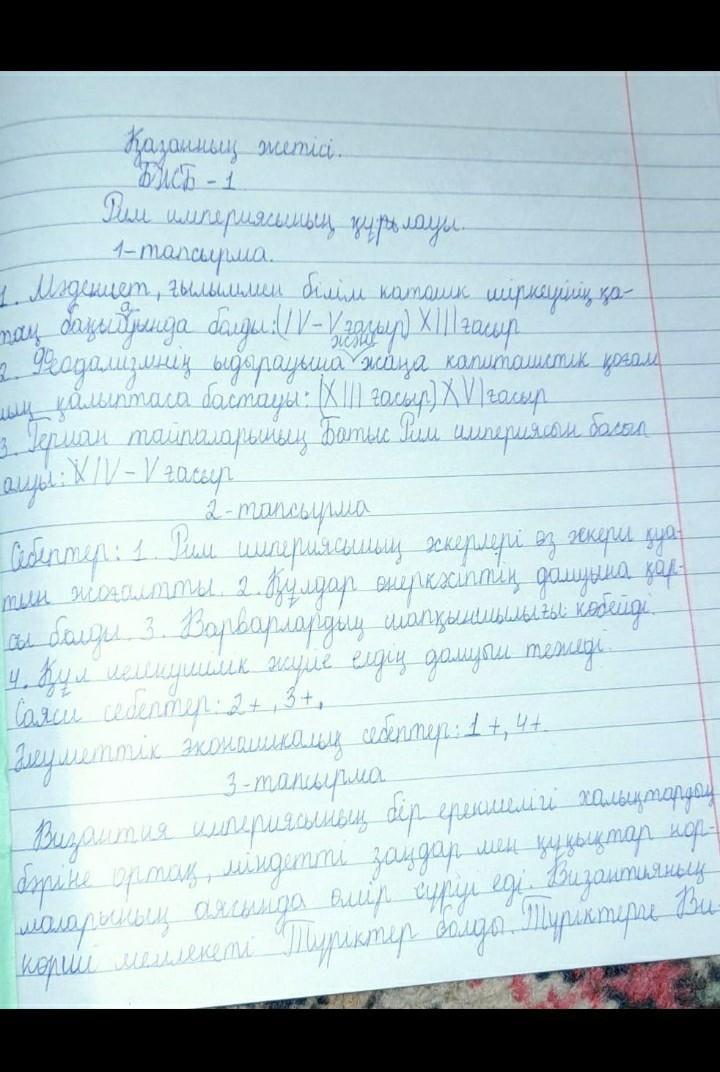 Қазанның жетісі.
БЖБ - 1
Рим империясының құрылауы.
1-тапсырма.
1. Мәдениет, ғылыммен білім католик шіркеуінің қа-
таң бақылауында болды: (IV-V ғасыр) XIII ғасыр
және
2. Феодализмнің ыдырауына жаңа капиталистік қоғам
ның қалыптаса бастауы: (XIII ғасыр) XVI ғасыр
3. Герман тайпаларының Батыс Рим империясын басып
алуы: XIV-V ғасыр
2-тапсырма
Себептер: 1. Рим империясының әскерлері өз әскери қуа-
тын жоғалтты. 2. Құлдар өнеркәсіптің дамуына қар-
сы болды. 3. Варварлардың шапқыншылығы көбейді.
4. Құл иеленушілік жүйе елдің дамуын тежеді.
Саяси себептер: 2+, 3+,
Әлуметтік экономикалық себептер: 1+, 4+.
3-тапсырма
Византия империясының бір ерекшелігі халықтардың
бәріне ортақ, міндетті заңдар мен құқықтар нор-
маларының аясында өмір сүруі еді. Византияның
көрші мемлекеті Түріктер болды. Түріктерге Ви-